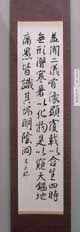 蓋聞二儀有像顯覆載以含生四時
無形潛寒暑以化物是以窺天鑑地
庸愚皆識其端明陰洞